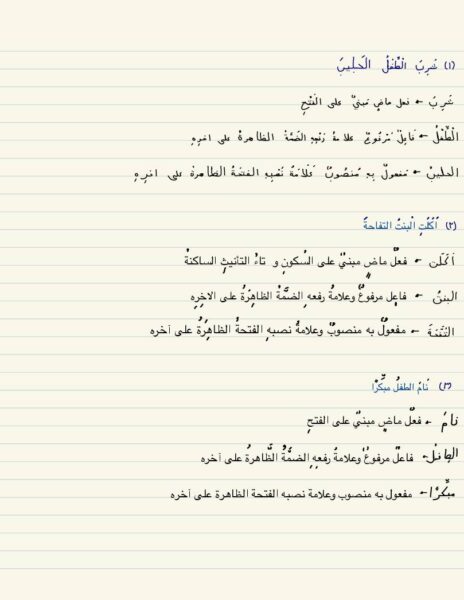 (١) شَرِبَ الطِّفْلُ الْحَلِيبَ
شَرِبَ ← فعل ماضٍ مبنيٌ على الفَتْحِ
الْطِّفْلُ ← فَاعِلٌ مَرْفُوعٌ علامةُ رَفْعِهِ الضَّمَّةُ الظاهرةُ على اخرِهِ
الحليبَ ← مفعولٌ بهِ مَنصُوبٌ عَلَامَةُ نَصْبِهِ الفتحةُ الظَاهرةُ على اخرِهِ
(٢) أَكَلَتِ الْبنتُ التفاحةَ
أَكَلَت ← فعلٌ ماضٍ مبنيٌ على السُكونِ و تاءُ التأنيثِ الساكنةُ
البنتُ ← فاعِل مرفوعٌ وعلامةُ رفعهِ الضمَّةُ الظاهِرَةُ على الاخِرِه
← مفعولٌ به منصوبٌ وعلامةُ نصبهِ الفتحةُ الظاهِرَةُ على آخره
(٣) نَامَ الطفلُ مبَكِّرًا
نامَ ← فعلٌ ماضٍ مبنيٌ على الفتحِ
← فاعلٌ مرفوعٌ وعلامةُ رفعِهِ الضمَّةُ الظَّاهرةُ على آخره
مبَكِّرًا ← مفعول به منصوب وعلامة نصبه الفتحة الظاهرة على آخره